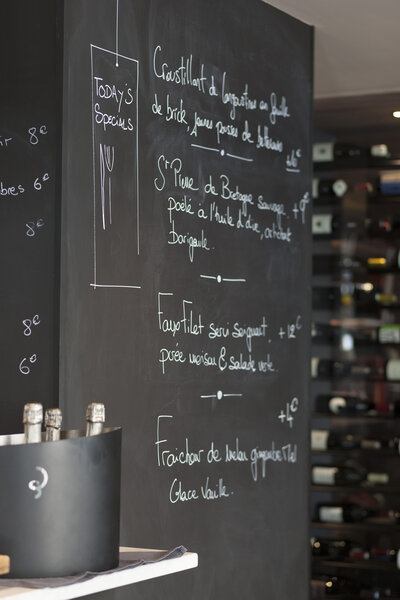 TODAY'S
Specials
Croustillant de langoustine en feuille
de brick, jeunes pousses de betterave
St Pierre de Bretagne sauvage. +9€
poêlé à l'huile d'olive, artichaut
barigoule.
Faux Filet servi saignant. +12€
purée maison & salade verte.
+4€
Fraicheur de melon gingembre Miel
Glace Vanille.
8€
bres 6€
8€
8€
6€